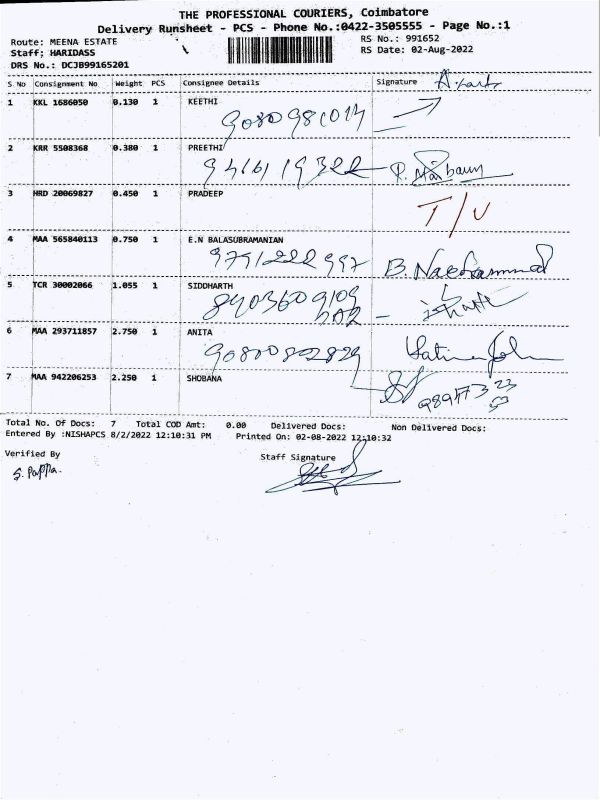 THE PROFESSIONAL COURIERS, Coimbatore
Delivery Runsheet - PCS - Phone No.:0422-3505555 - Page No.:1
Route: MEENA ESTATE
RS No.: 991652
Staff: HARIDASS
RS Date: 02-Aug-2022
DRS No.: DCJB99165201
S No Consignment No Weight PCS Consignee Details Signature
1 KKL 1686050 0.130 1 KEETHI
2 KRR 5508368 0.380 1 PREETHI
3 HRD 20069827 0.450 1 PRADEEP T/U
4 MAA 565840113 0.750 1 E.N BALASUBRAMANIAN
9791222997
5 TCR 30002066 1.055 1 SIDDHARTH
8403609109
6 MAA 293711857 2.750 1 ANITA
7 MAA 942206253 2.250 1 SHOBANA
Total No. Of Docs: 7 Total COD Amt: 0.00 Delivered Docs: Non Delivered Docs:
Entered By :NISHAPCS 8/2/2022 12:10:31 PM Printed On: 02-08-2022 12:10:32
Verified By Staff Signature
S. Pappa.